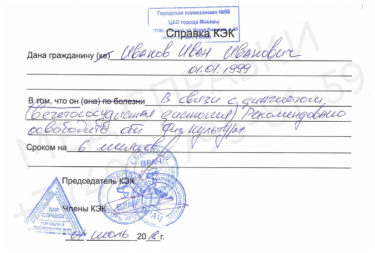 Городская поликлиника №68
ЦАО города Москвы
Справка КЭК
Дана гражданину (ке) Иванов Иван Иванович
01.01.1999
В том, что он (она) по болезни В связи с диагнозом
(Вегетососудистая дистония) Рекомендовано
освободить от физкультуры
Сроком на 6 месяцев
Председатель КЭК
ВРАЧ
Члены КЭК
ДЛЯ
СПРАВОК
июль 20